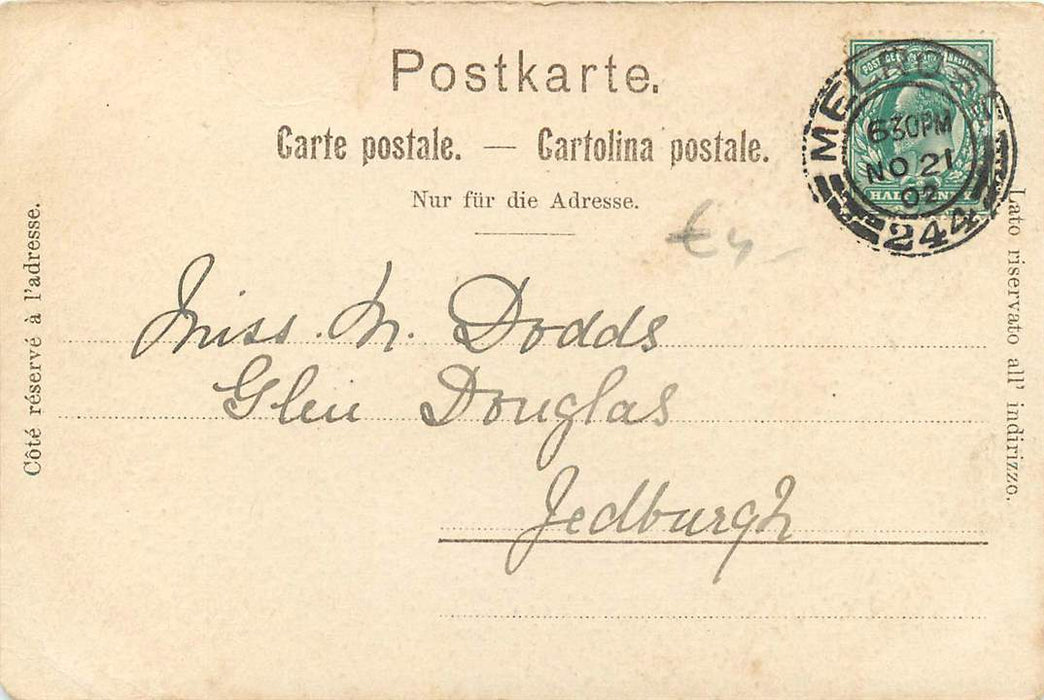 Postkarte.
Carte postale. — Cartolina postale.
Nur für die Adresse.
€4,-
Miss. M. Dodds
Glen Douglas
Jedburgh
Côté réservé à l'adresse.
Lato riservato all' indirizzo.
MELROSE
630PM
NO 21
02
244